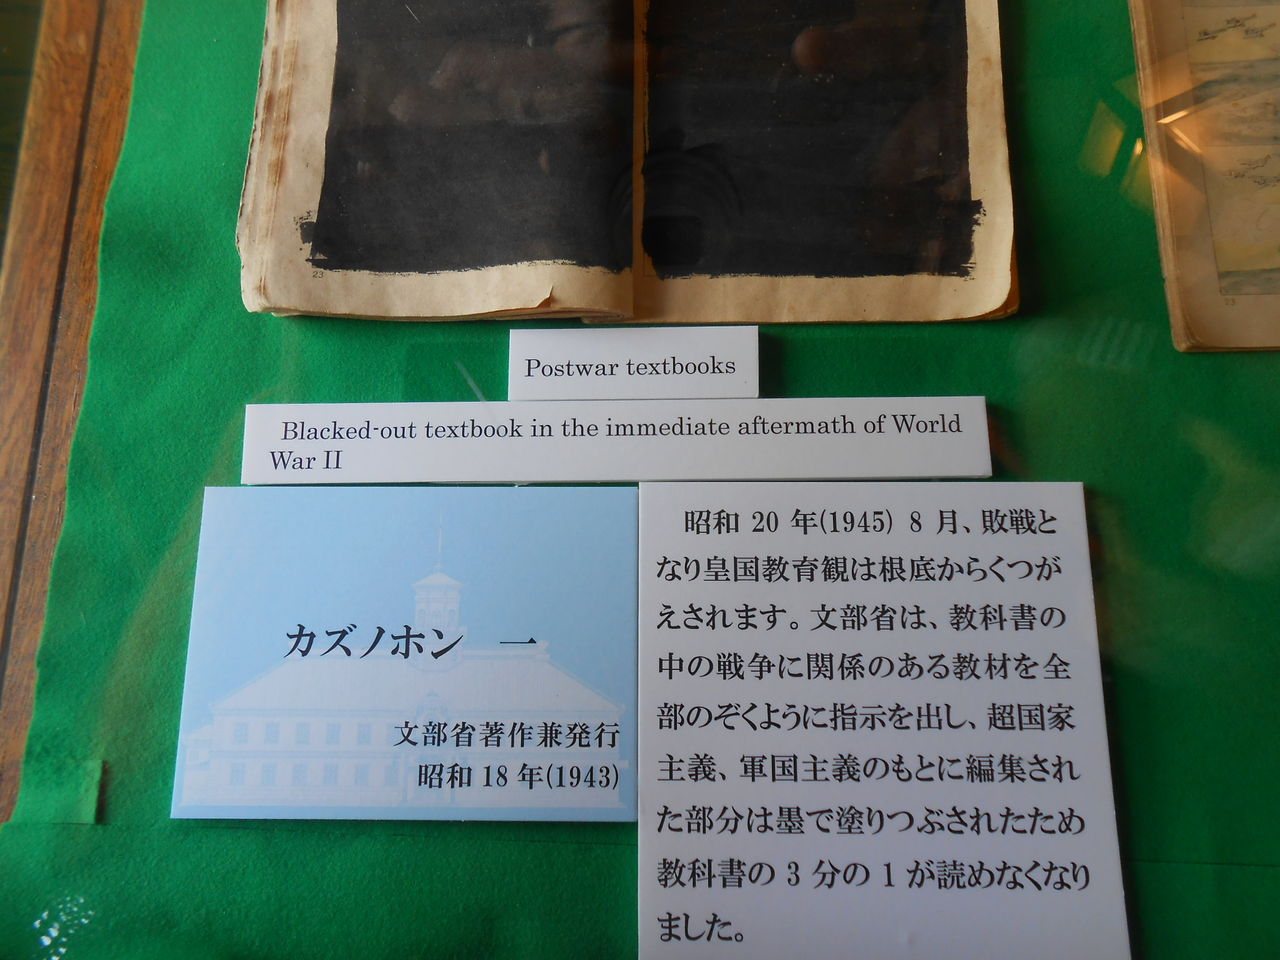 23
23
Postwar textbooks
Blacked-out textbook in the immediate aftermath of World
War II
カズノホン 一
文部省著作兼発行
昭和 18 年(1943)
昭和 20 年(1945) 8 月、敗戦と
なり皇国教育観は根底からくつが
えされます。文部省は、教科書の
中の戦争に関係のある教材を全
部のぞくように指示を出し、超国家
主義、軍国主義のもとに編集され
た部分は墨で塗りつぶされたため
教科書の 3 分の 1 が読めなくなり
ました。